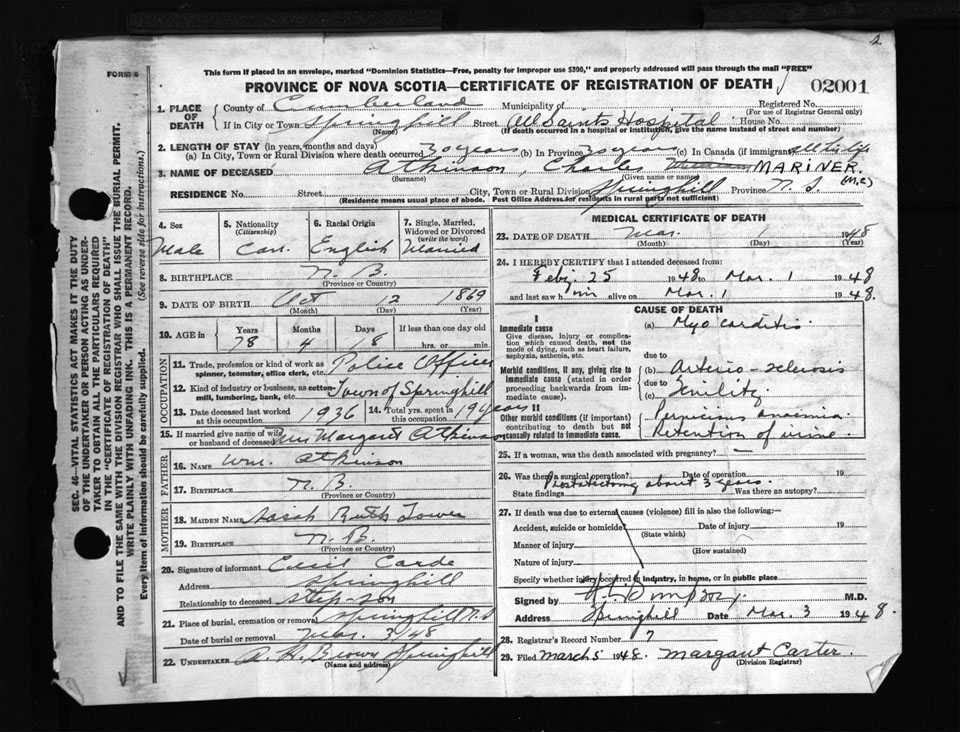 2.
FORM 6
This form if placed in an envelope, marked "Dominion Statistics—Free, penalty for improper use $300," and properly addressed will pass through the mail "FREE"
PROVINCE OF NOVA SCOTIA—CERTIFICATE OF REGISTRATION OF DEATH
02001
1. PLACE OF DEATH
County of Cumberland Municipality of Registered No.
(For use of Registrar General only)
If in City or Town Springhill Street All Saints Hospital House No.
(Name) (If death occurred in a hospital or institution, give the name instead of street and number)
2. LENGTH OF STAY (in years, months and days)
(a) In City, Town or Rural Division where death occurred 30 years (b) In Province 30 years (c) In Canada (if immigrant) All his life
3. NAME OF DECEASED Atkinson, Charles MARINER. (M.C)
(Surname) (Given name or names)
RESIDENCE No. Street City, Town or Rural Division Springhill Province N. S.
(Residence means usual place of abode. Post Office Address for residents in rural parts not sufficient)
4. Sex Male
5. Nationality (Citizenship) Can.
6. Racial Origin English
7. Single, Married, Widowed or Divorced (write the word) Married
8. BIRTHPLACE N. B.
(Province or Country)
9. DATE OF BIRTH Oct 12 1869
(Month) (Day) (Year)
10. AGE in Years 78 Months 4 Days 18 If less than one day old hrs. or min.
OCCUPATION
11. Trade, profession or kind of work as spinner, teamster, office clerk, etc. Police Officer
12. Kind of industry or business, as cotton-mill, lumbering, bank, etc. Town of Springhill
13. Date deceased last worked at this occupation 1936
14. Total yrs. spent in this occupation 19 years
15. If married give name of wife or husband of deceased Margaret Atkinson
FATHER
16. NAME Wm. Atkinson
17. BIRTHPLACE N. B.
(Province or Country)
MOTHER
18. MAIDEN NAME Ruth Tower
19. BIRTHPLACE N. B.
(Province or Country)
20. Signature of informant Cecil Carde
Address Springhill
Relationship to deceased step-son
21. Place of burial, cremation or removal Springhill N.S
Date of burial or removal Mar. 3/48
22. UNDERTAKER A. H. Brown Springhill
(Name and address)
MEDICAL CERTIFICATE OF DEATH
23. DATE OF DEATH Mar. 1 1948
(Month) (Day) (Year)
24. I HEREBY CERTIFY that I attended deceased from:
Feby. 25 1948 to Mar. 1 1948
and last saw him alive on Mar. 1 1948.
CAUSE OF DEATH
I
Immediate cause (a) Myocarditis
Give disease, injury or complication which caused death, not the mode of dying, such as heart failure, asphyxia, asthenia, etc.
due to
Morbid conditions, if any, giving rise to immediate cause (stated in order proceeding backwards from immediate cause). (b) Arterio-sclerosis
due to
(c) Senility
II
Other morbid conditions (if important) contributing to death but not causally related to immediate cause. Pernicious anaemia
Retention of urine.
25. If a woman, was the death associated with pregnancy? —
26. Was there a surgical operation? Date of operation 19
Prostatectomy about 3 years.
State findings Was there an autopsy?
27. If death was due to external causes (violence) fill in also the following:—
Accident, suicide or homicide? Date of injury 19
(State which)
Manner of injury
(How sustained)
Nature of injury
Specify whether injury occurred in industry, in home, or in public place
Signed by Simpson M.D.
Address Springhill Date Mar. 3 1948.
28. Registrar's Record Number 7
29. Filed March 5 1948. Margaret Carter.
(Division Registrar)
SEC. 46—VITAL STATISTICS ACT MAKES IT THE DUTY OF THE UNDERTAKER OR PERSON ACTING AS UNDERTAKER TO OBTAIN ALL THE PARTICULARS REQUIRED IN THE "CERTIFICATE OF REGISTRATION OF DEATH" AND TO FILE THE SAME WITH THE DIVISION REGISTRAR WHO SHALL ISSUE THE BURIAL PERMIT.
WRITE PLAINLY WITH UNFADING INK. THIS IS A PERMANENT RECORD.
Every item of information should be carefully supplied. (See reverse side for instructions.)